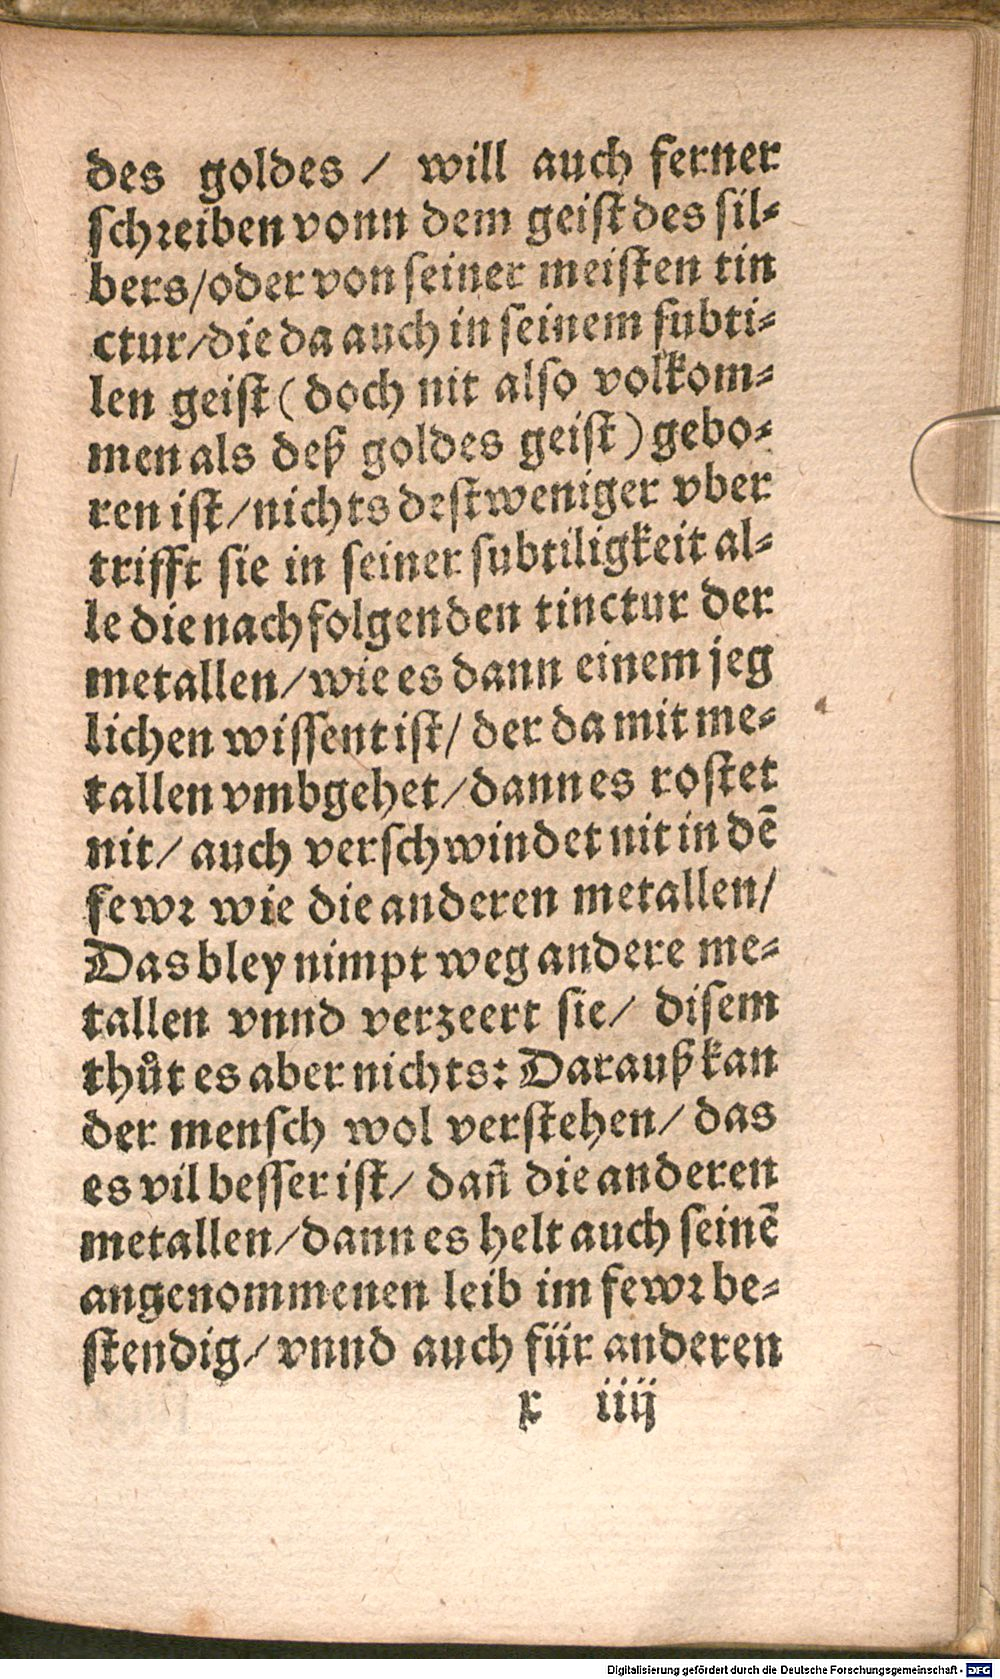 des goldes / will auch ferner
schreiben vonn dem geist des sil-
bers/oder von seiner meisten tin
ctur/die da auch in seinem subti-
len geist (doch nit also volkom-
men als deß goldes geist) gebo-
ren ist/nichts destweniger vber
trifft sie in seiner subtiligkeit al-
le die nachfolgenden tinctur der
metallen/wie es dann einem jeg
lichen wissent ist/ der da mit me-
tallen vmbgehet/dann es rostet
nit/ auch verschwindet nit in dē
fewr wie die anderen metallen/
Das bley nimpt weg andere me-
tallen vnnd verzeert sie/ disem
thůt es aber nichts: Darauß kan
der mensch wol verstehen/ das
es vil besser ist/ dañ die anderen
metallen/dann es helt auch seinē
angenommenen leib im fewr be-
stendig/ vnnd auch für anderen
x iiij
Digitalisierung gefördert durch die Deutsche Forschungsgemeinschaft - DFG